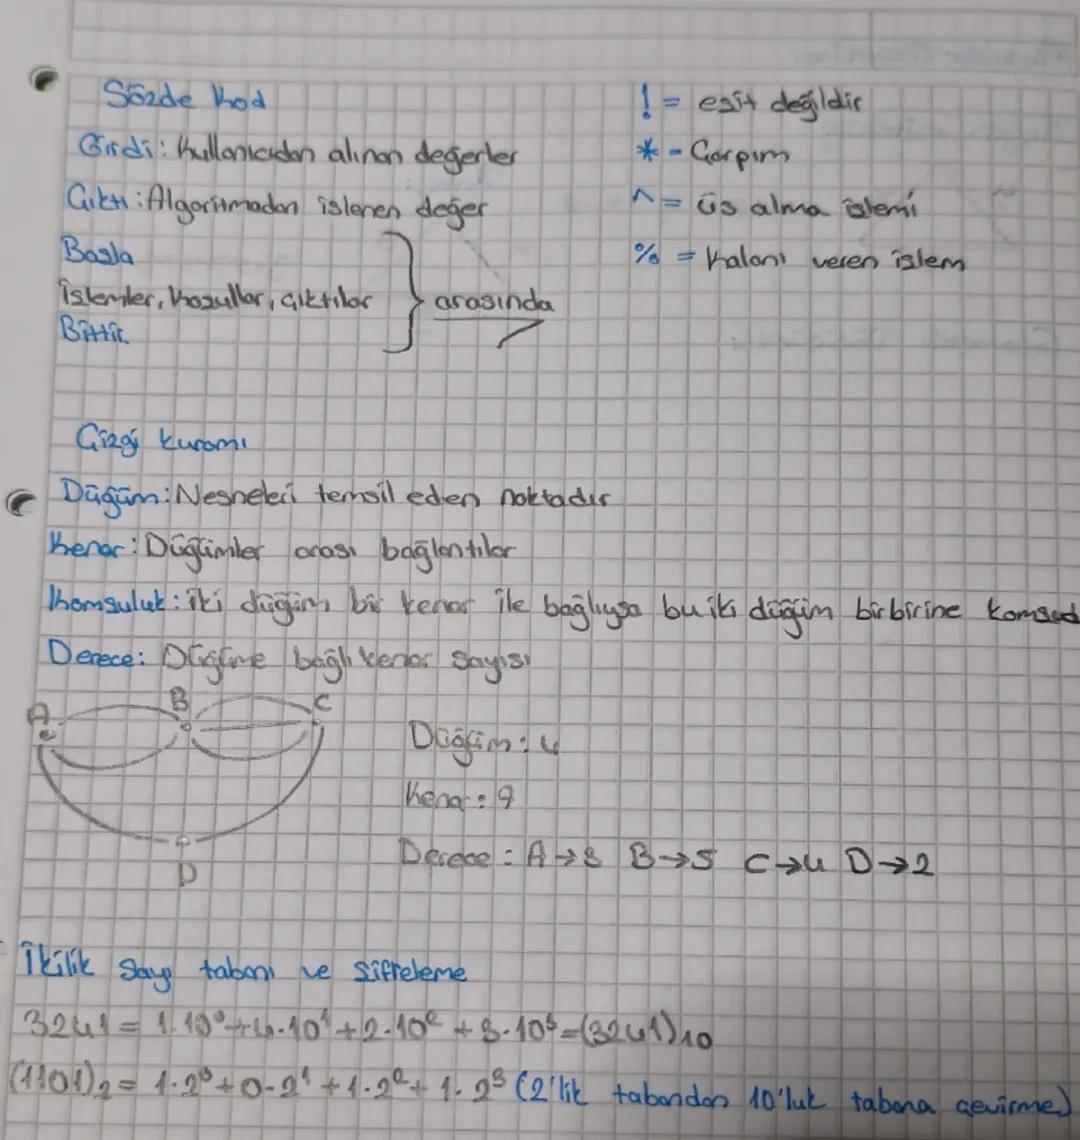 Sözde Kod
Girdi: Kullanıcıdan alınan değerler
Çıktı: Algoritmadan işlenen değer
Başla
İşlemler, koşullar, çıktılar
Bittir
arasında
!= eşit değildir
* - Çarpım
^ = üs alma işlemi
% = Kalanı veren işlem
Çizgi kuramı
Düğüm: Nesneleri temsil eden noktadır
Kenar: Düğümler arası bağlantılar
Komşuluk: iki düğüm bir kenar ile bağlıysa bu iki düğüm birbirine komşud
Derece: Düğüme bağlı kenar sayısı
A B C
D
Düğüm: 4
Kena: 9
Derece: A→3 B→5 C→4 D→2
İkilik Sayı tabanı ve Şifreleme
3241 = 1.10⁰+4.10¹+2.10²+3.10³=(3241)10
(1101)2 = 1.2⁰+0.2¹+1.2²+1.2³ (2'lik tabandan 10'luk tabana çevirme)